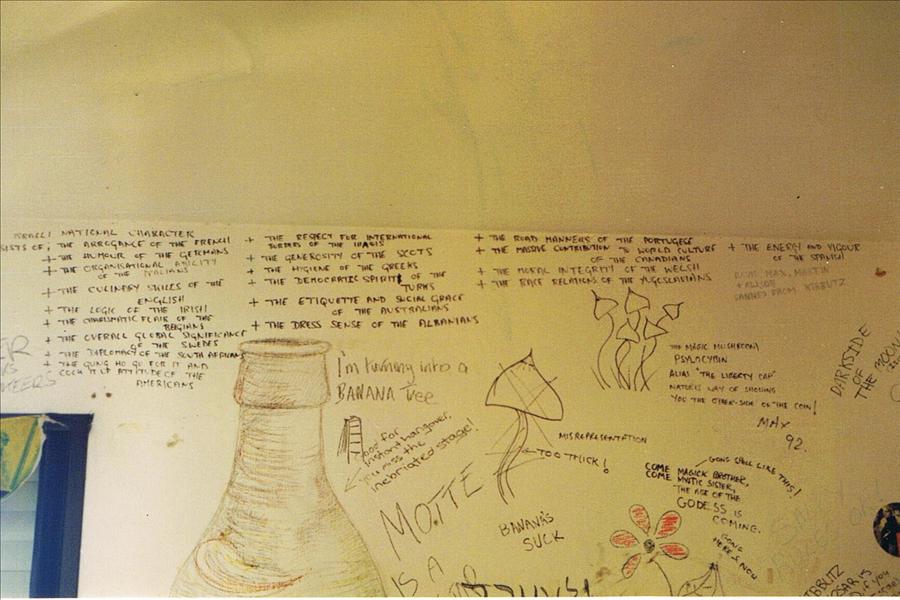 ISRAELI NATIONAL CHARACTER
SISTS OF; THE ARROGANCE OF THE FRENCH
+ THE HUMOUR OF THE GERMANS
+ THE ORGANISATIONAL ABILITY
OF THE ITALIANS
+ THE CULINARY SKILLS OF THE
ENGLISH
+ THE LOGIC OF THE IRISH
+ THE CHARISMATIC FLAIR OF THE
BELGIANS
+ THE OVERALL GLOBAL SIGNIFICANCE
OF THE SWEDES
+ THE DIPLOMACY OF THE SOUTH AFRICANS
+ THE GUNG HO GO FOR IT AND
COCK IT UP ATTITUDE OF THE
AMERICANS
+ THE RESPECT FOR INTERNATIONAL
BORDERS OF THE IRAQIS
+ THE GENEROSITY OF THE SCOTS
+ THE HYGIENE OF THE GREEKS
+ THE DEMOCRATIC SPIRIT OF THE
TURKS
+ THE ETIQUETTE AND SOCIAL GRACE
OF THE AUSTRALIANS
+ THE DRESS SENSE OF THE ALBANIANS
+ THE ROAD MANNERS OF THE PORTUGESE
+ THE MASSIVE CONTRIBUTION TO WORLD CULTURE
OF THE CANADIANS
+ THE MORAL INTEGRITY OF THE WELSH
+ THE RACE RELATIONS OF THE YUGOSLAVIANS
+ THE ENERGY AND VIGOUR
OF THE SPANISH
MAX, MARTIN
+ ALISON
BANNED FROM KIBBUTZ
I'm turning into a
BANANA Tree
Good for
instant hangover,
You miss the
inebriated stage!
MOTTE
IS A
BANANA'S
SUCK
MISREPRESENTATION
TOO THICK!
THE MAGIC MUSHROOM
PSYLOCYBIN
ALIAS "THE LIBERTY CAP"
NATURES WAY OF SHOWING
YOU THE OTHER-SIDE OF THE COIN!
MAX
92.
DARKSIDE
OF
THE MOON
GONG SPELL LIKE THIS!
COME MAGICK BROTHER,
COME MYSTIC SISTER,
THE AGE OF THE
GODESS IS
COMING.
GONG
HERE & NOW